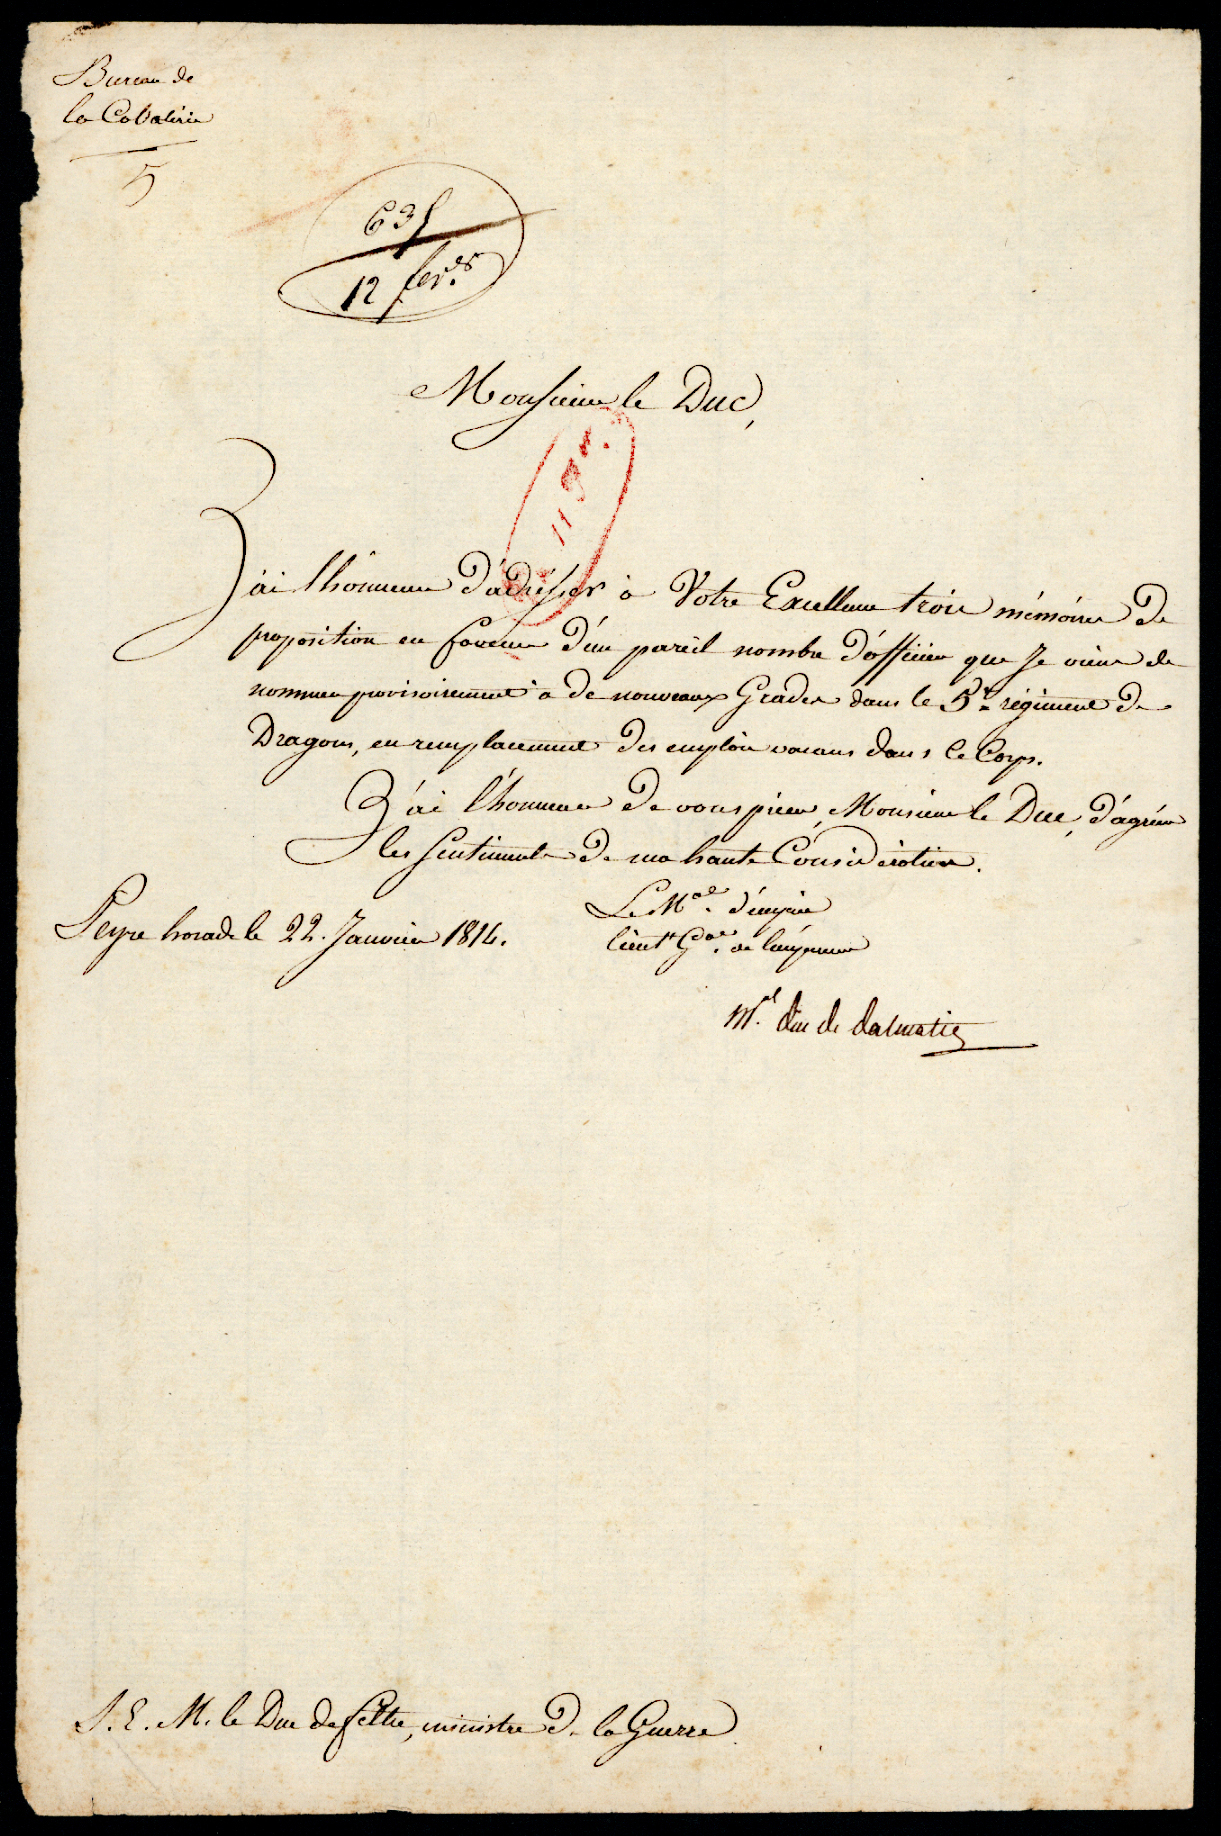 Bureau de
la Cavalerie
5
635
12 fev.er
Monsieur le Duc,
J'ai l'honneur d'adresser à Votre Excellence trois mémoires de
proposition en faveur d'un pareil nombre d'officiers que Je viens de
nommer provisoirement à de nouveaux Grades dans le 5e. régiment de
Dragons, en remplacement des emplois vacans dans ce Corps.
J'ai l'honneur de vous prier, Monsieur le Duc, d'agréer
les sentiments de ma haute Considération.
Le Mal. d'empire
Peyre horade le 22. Janvier 1814.
lieutt. Gal. de l'empereur
Mal. duc de dalmatie
S. E. M. le Duc de feltre, ministre de la Guerre